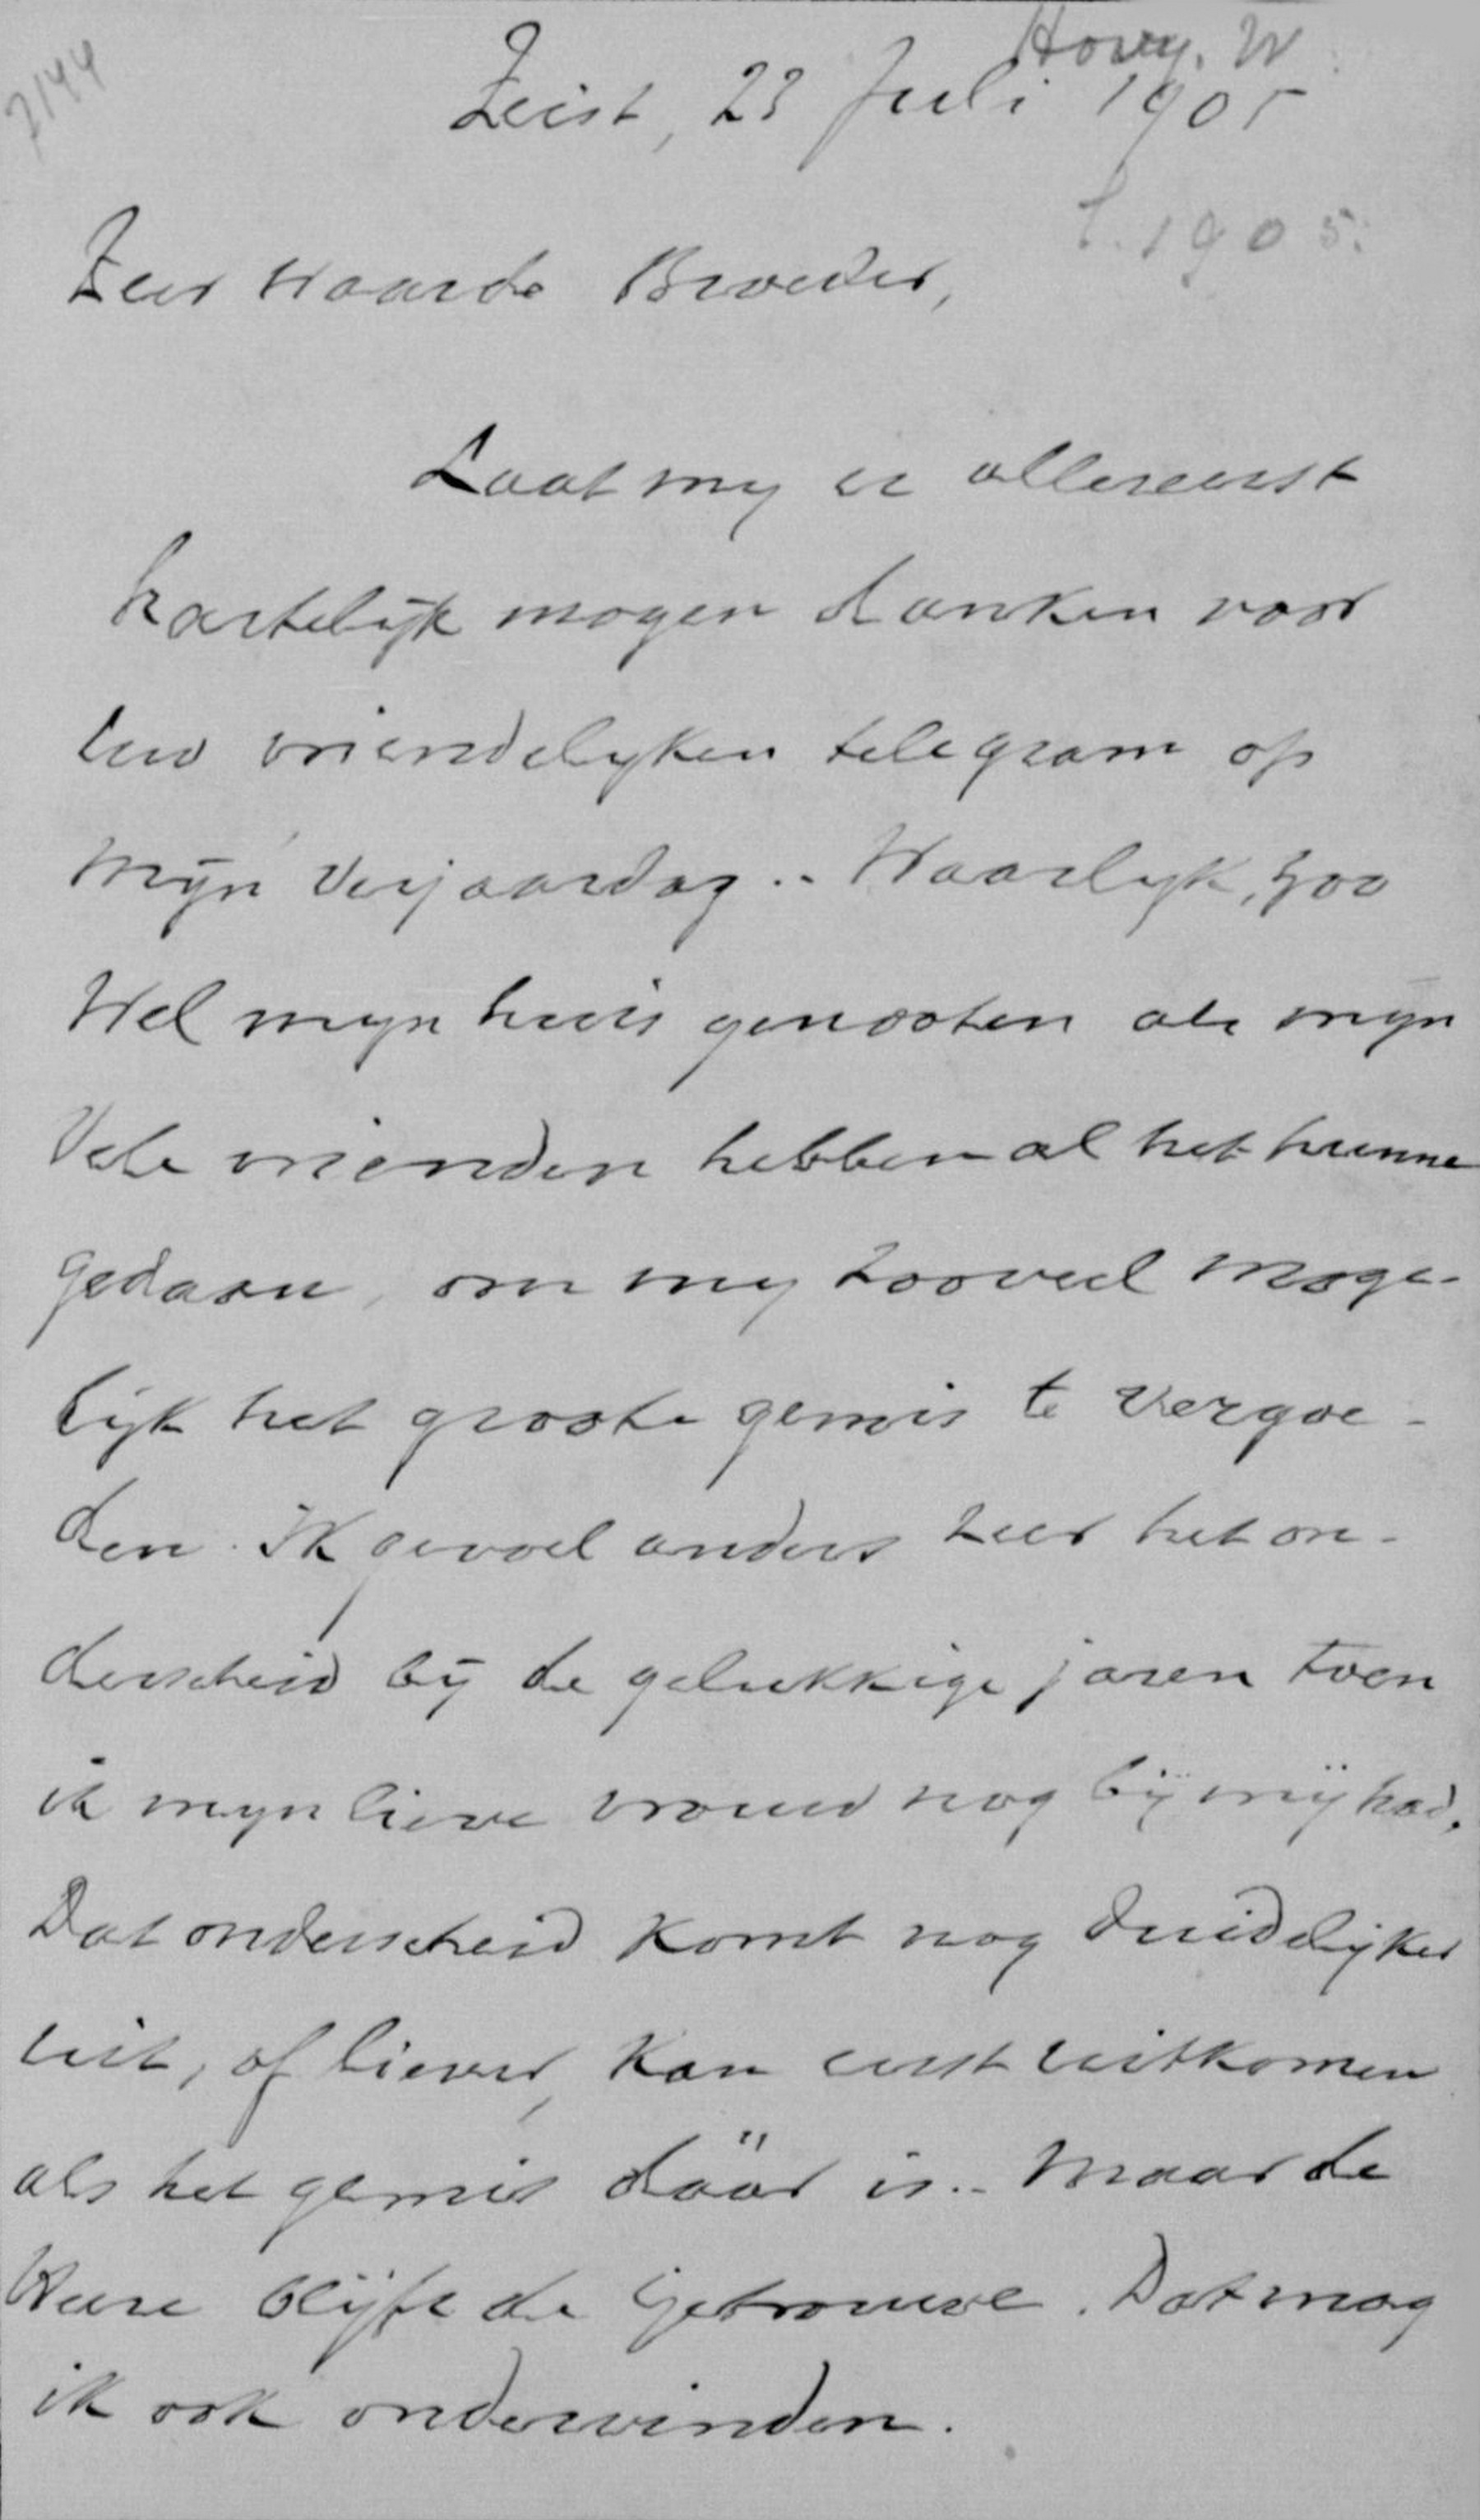 7144
Hovy. W.
Zeist, 23 Juli 1905
1905.
Zeer Waarde Broeder,
Laat my U allereerst
hartelyk mogen danken voor
Uw vriendelyken telegram op
Mijn Verjaardag.. Waarlyk, zoo
Wel mijn huisgenooten als mijn
Vele vrienden hebben al het hunne
gedaan, om my zooveel moge-
lijk het groote gemis te vergoe-
den. Ik gevoel anders zeer het on-
derscheid bij de gelukkige jaren toen
ik myn lieve vrouw nog bij mij had.
Dat onderscheid komt nog duidelijker
uit, of liever, kan eerst uitkomen
als het gemis däär is.. Maar de
Heere blijft de Getrouwe. Dat mag
ik ook ondervinden.